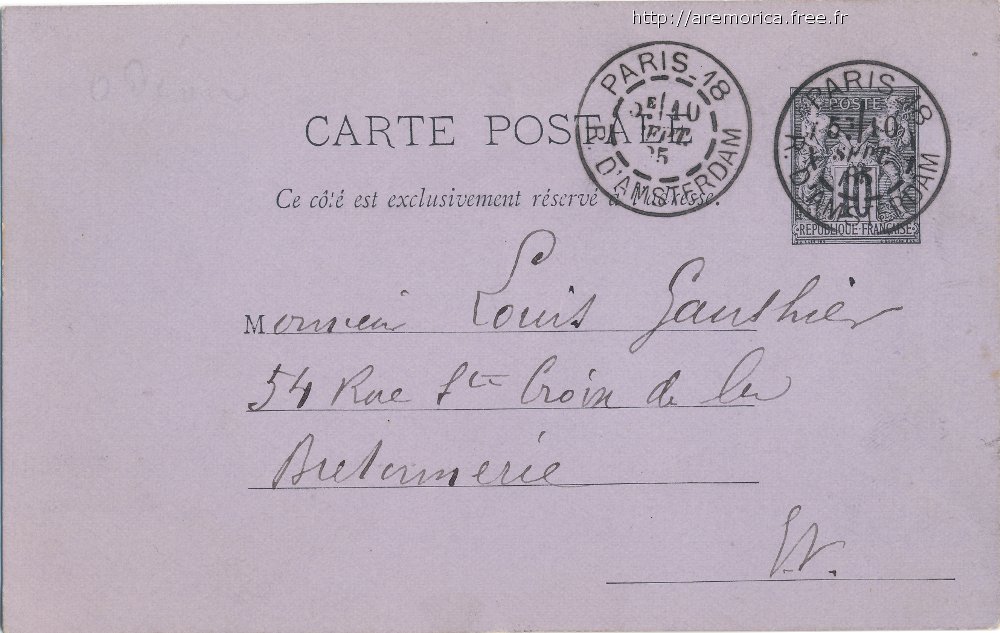 http://aremorica.free.fr
PARIS. 18
5E/10
SEPT
85
R. D'AMSTERDAM
PARIS 18
5E/10
SEPT
85
R. D'AMSTERDAM
POSTE
10
REPUBLIQUE FRANÇAISE
CARTE POSTALE
Ce côté est exclusivement réservé à l'adresse.
Monsieur Louis Gauthier
54 Rue Ste Croix de la
Bretonnerie
E.V.